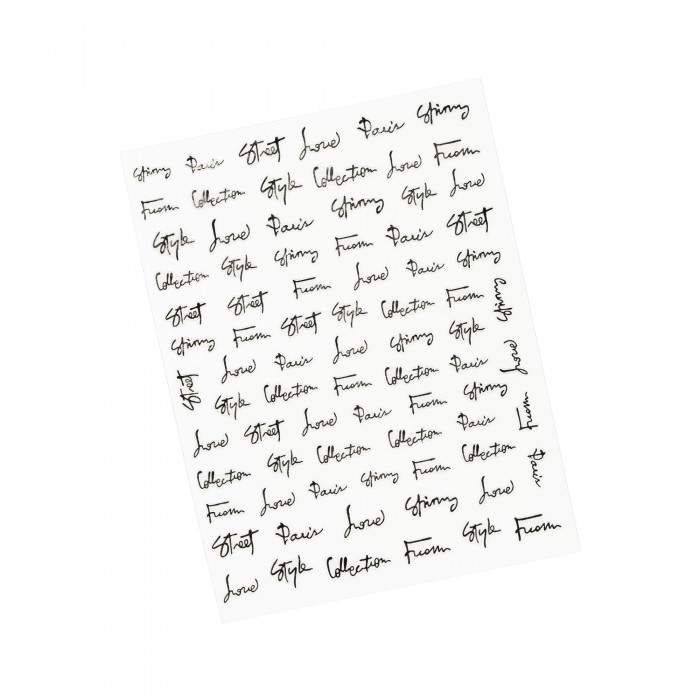 Paris Street Love Paris
From Collection Style Collection Love From
Style Love Paris Style Love
Collection Style From Paris Street
Street Street From Love Paris
From Street Style Collection From
Love Paris Love Style
Style Collection From Collection Paris
Love Street Paris From
Collection Style Collection Paris
From Love Paris From Collection
Street Paris Love Love
Love Style Collection From Style From
Street
Love
From
Paris